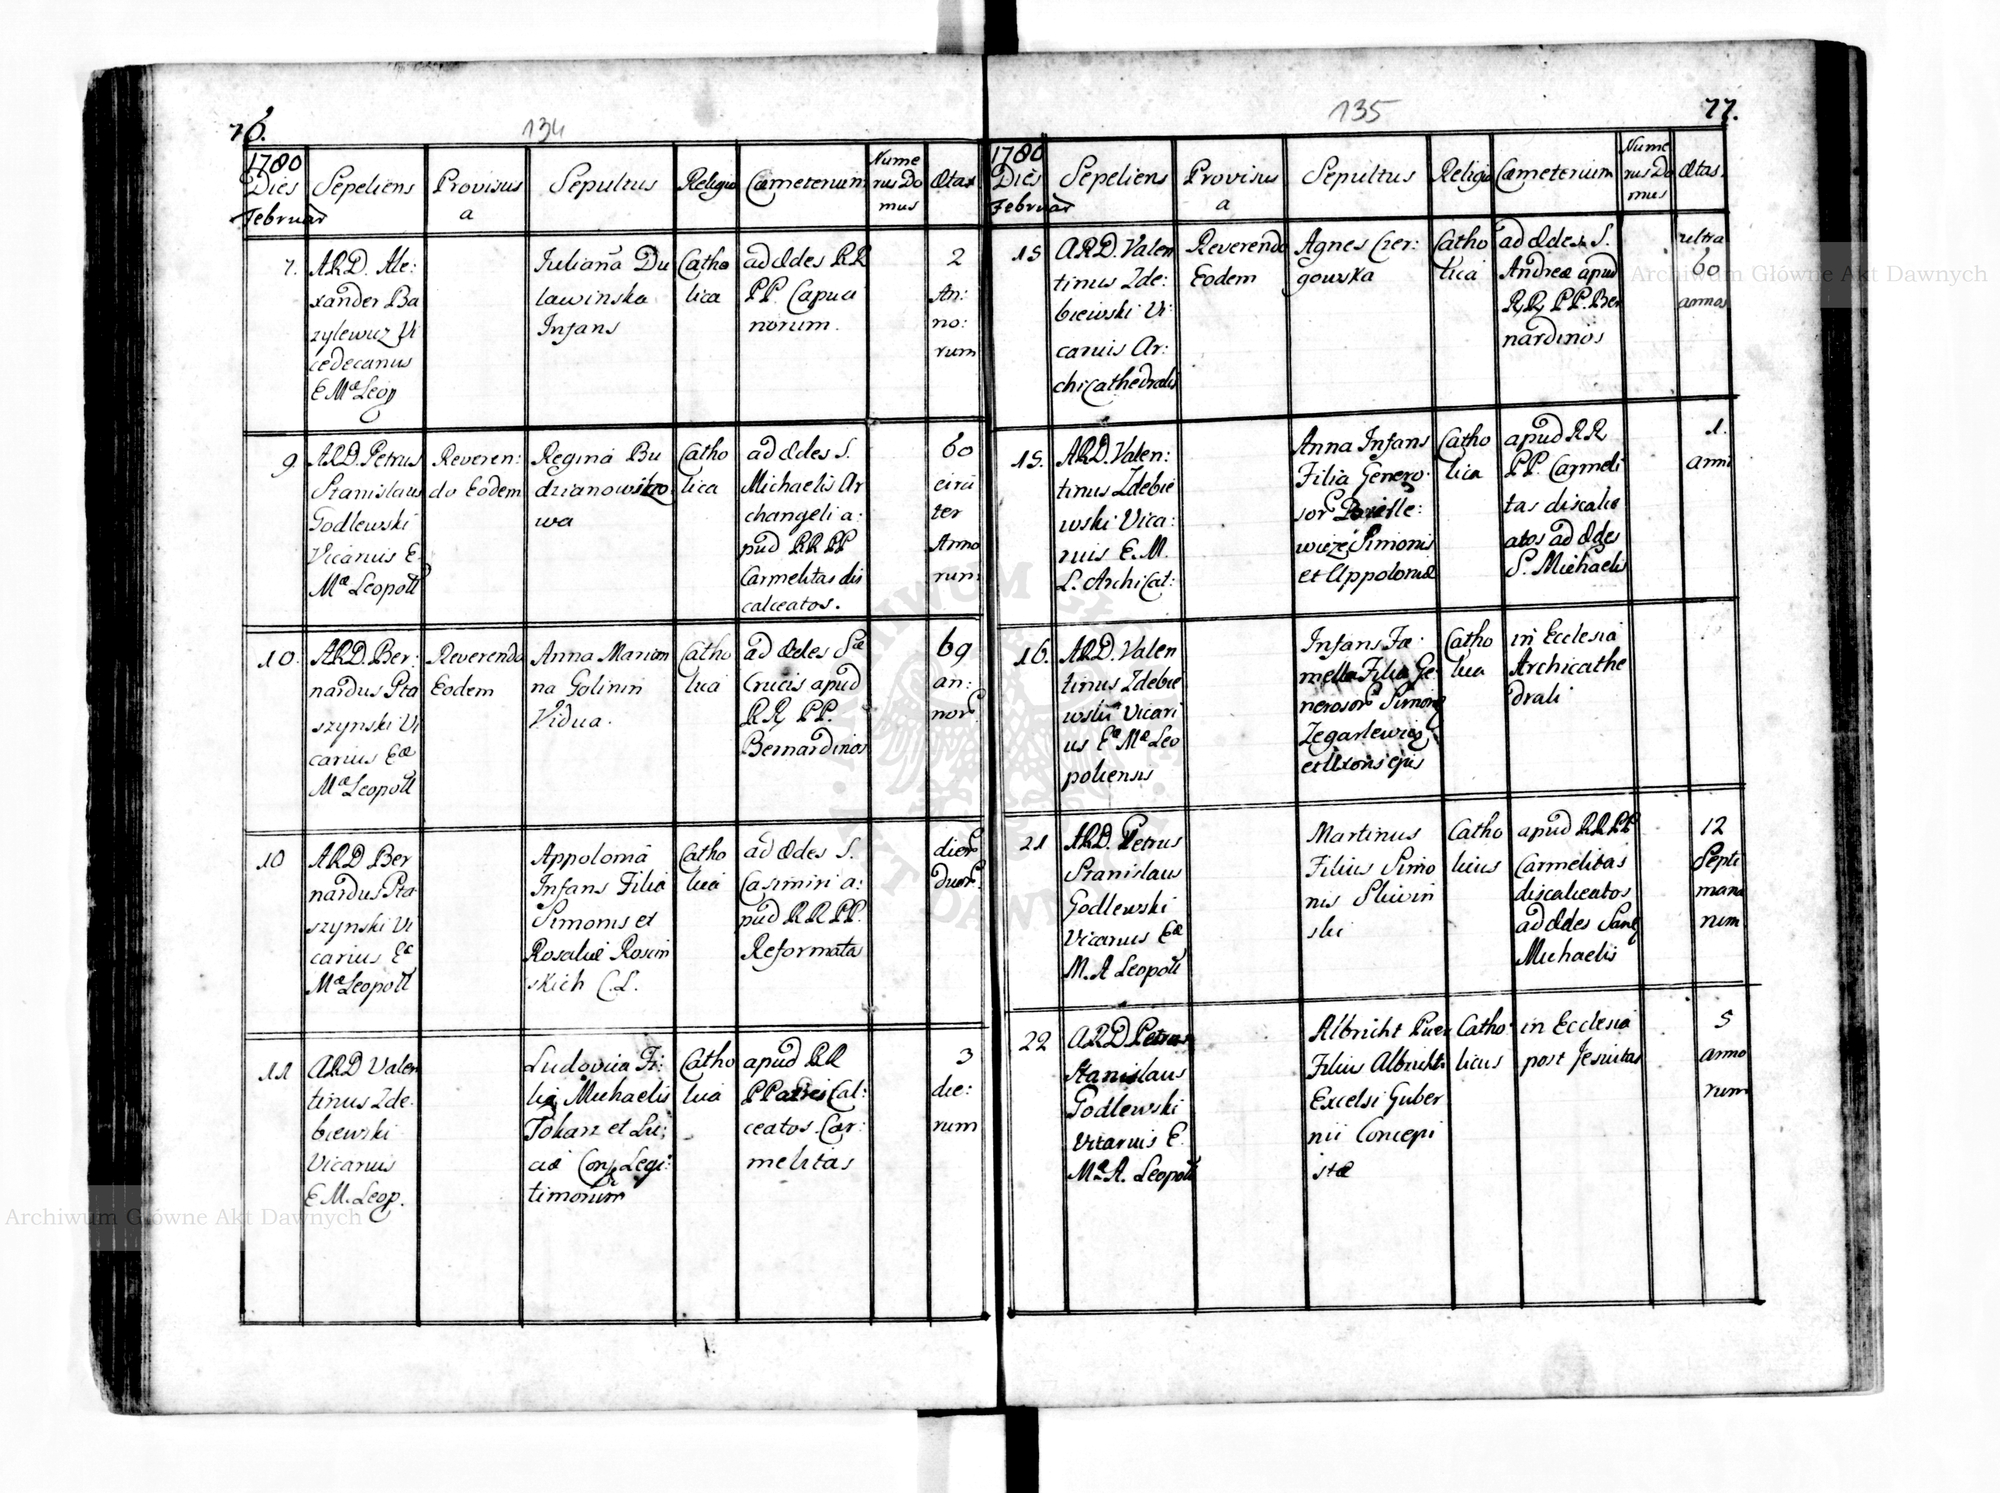 76.
134
1780
Dies
Februar
Sepeliens
Provisus
a
Sepultus
Religio
Cæmeterium
Nume
rus Do
mus
Ætas.
7.
ARD. Ale:
xander Ba
zylewicz Vi
cedecanus
E. Mæ Leop
Iuliana Du
lawinska
Infans
Catho
lica
ad Ædes RR
PP. Capuci
norum.
2
An:
no:
rum
9
ARD. Petrus
Stanislaus
Godlewski
Vicarius E.
Mæ Leopoll
Reveren:
do Eodem
Regina Bu
dzianowsko
wa
Catho
lica
ad Ædes S.
Michaelis Ar
changeli a:
pud RR PP
Carmelitas dis
calceatos.
60
circi
ter
Anno
rum
10.
ARD. Ber:
nardus Pta
szynski Vi
carius Eæ
Mæ Leopoll
Reverendo
Eodem
Anna Marian
na Golinin
Vidua.
Catho
lica
ad Ædes Sæ
Crucis apud
RR PP.
Bernardinos
69
an:
nor
10
ARD Ber
nardus Pta
szynski Vi
carius Eæ
Mæ Leopoll
Appolonia
Infans Filia
Simonis et
Rosaliæ Roscin
skich C. L.
Catho
lica
ad Ædes S.
Casimiri a:
pud RR PP.
Reformatas
dier
duor
11
ARD Valen
tinus Zde
biewski
Vicarius
E. M. Leop.
Ludovica Fi:
lia Michaelis
Johan et Lu:
ciæ Conj. Legi:
timorum
Catho
lica
apud RR
PPatres Cal:
ceatos Car:
melitas
3
die:
rum
135
77.
1780
Dies
Februar
Sepeliens
Provisus
a
Sepultus
Religio
Cæmeterium
Nume
rus Do
mus
Ætas.
15
ARD. Valen
tinus Zde:
biewski Vi:
carius Ar:
chicathedralis
Reverendo
Eodem
Agnes Czer:
gowska
Catho
lica
ad Ædes S.
Andreæ apud
RR PP. Ber
nardinos
ultra
60
annos
15.
ARD. Valen:
tinus Zdebie
wski Vica:
rius E. M.
L. ArchiCat:
Anna Infans
Filia Genero
sor
wicze Simonis
et Appoloniæ
Catho
lica
apud RR
PP. Carmeli
tas discalce
atos ad Ædes
S. Michaelis
1.
anni
16.
ARD. Valen
tinus Zdebie
wski Vicari
us Eæ Mæ Leo
poliensis
Infans Fæ
mella Filia Ge
nerosor Simonis
Zegarlewicz
et Uxoris ejus
Catho
lica
in Ecclesia
Archicathe
drali
21
ARD. Petrus
Stanislaus
Godlewski
Vicarius Eæ
M. A Leopoll
Martinus
Filius Simo
nis Sliwin
ski
Catho
licus
apud RR PP
Carmelitas
discalceatos
ad Ædes Sanc
Michaelis
12
Septi
mana
rum
22
ARD Petrus
Stanislaus
Godlewski
Vicarius E.
Mæ A. Leopoll
Albricht Puer
Filius Albrichti
Excelsi Guber
nii Concepi
stæ
Catho
licus
in Ecclesia
post Jesuitas
5
anno
rum
Archiwum Główne Akt Dawnych
Archiwum Główne Akt Dawnych